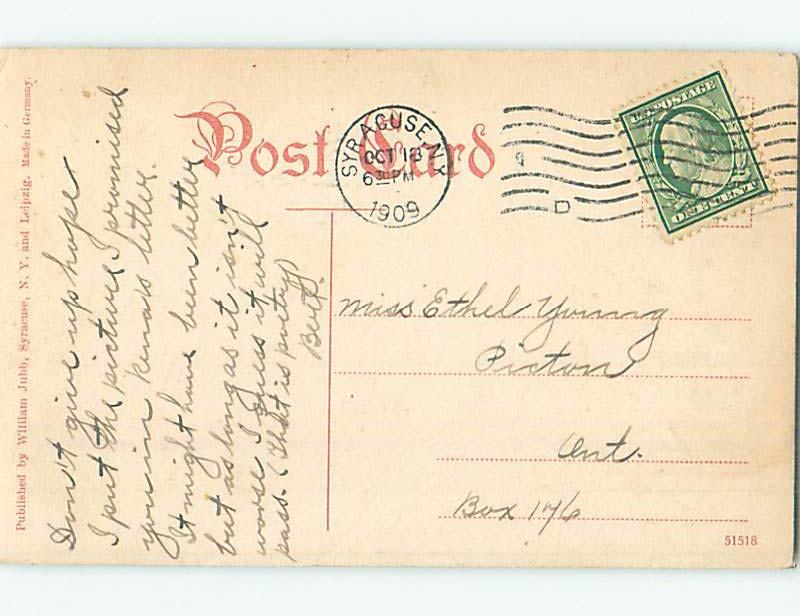 Post Card
SYRACUSE, N.Y.
OCT 18
6 30 PM
1909
D
U.S. POSTAGE
ONE CENT
Don't give up hope.
I put the picture I promised
you in Rena's letter.
It might have been better
but as long as it isn't
worse I guess it will
pass. (That is poetry
Bert.
Miss Ethel Young
Picton
Ont.
Box 176
Published by William Jubb, Syracuse, N. Y. and Leipzig. Made in Germany.
51518